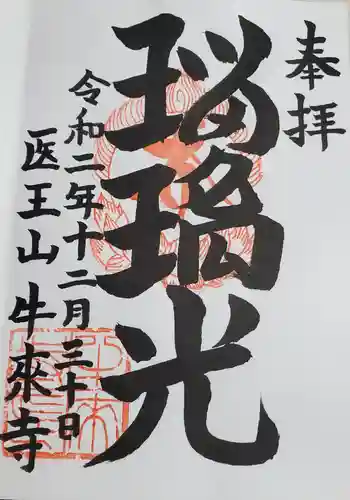 奉拝
瑠璃光
令和二年十二月三十日
医王山牛來寺